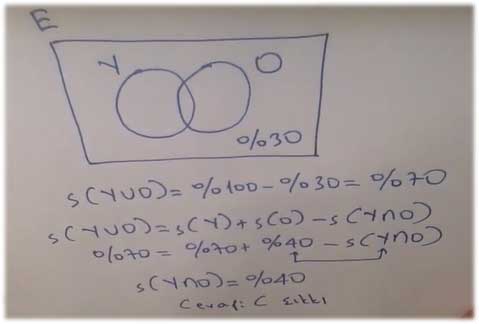 E
Y O
%30
s(YUO) = %100 - %30 = %70
s(YUO) = s(Y) + s(O) - s(Y∩O)
%70 = %70 + %40 - s(Y∩O)
s(Y∩O) = %40
Cevap: C şıkkı